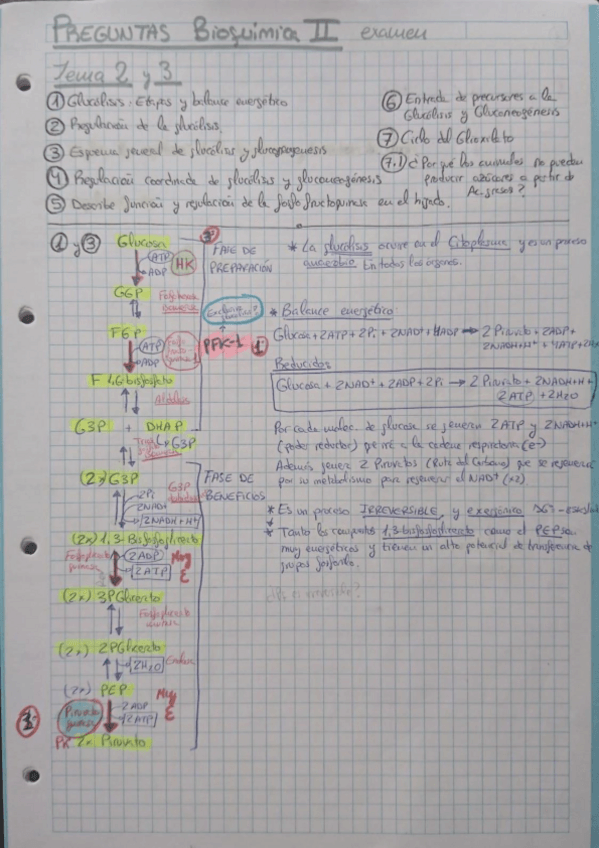 PREGUNTAS Bioquimica II examen
Tema 2 y 3
① Glucólisis. Etapas y balance energético
② Regulación de la glucólisis.
③ Esquema general de glucólisis y gluconeogénesis
④ Regulación coordinada de glucólisis y gluconeogénesis
⑤ Describe función y regulación de la fosfofructoquinasa en el hígado.
⑥ Entrada de precursores a la
Glucólisis y Gluconeogénesis
⑦ Ciclo del Glioxilato
7.1 ¿Por qué los animales no pueden
producir azúcares a partir de
Ac. grasos?
① y ③
Glucosa
ATP
ADP
HK
G6P
Fosfohexosa
isomerasa
F6P
ATP
ADP
PFK-1
F 1,6 bisfosfato
Aldolasa
G3P + DHAP
G3P
FASE DE
PREPARACIÓN
(2x) G3P
2Pi
2NAD+
2NADH+H+
G3P
(2x) 1,3-Bisfosfoglicerato
2ADP
2ATP
Muy
ε
(2x) 3PGlicerato
(2x) 2PGlicerato
2H2O
Enolasa
(2x) PEP
Piruvato
quinasa
2ADP
2ATP
Muy
ε
PK 2x Piruvato
FASE DE
BENEFICIOS
* La glucólisis ocurre en el Citoplasma y es un proceso
anaerobio En todos los órganos.
* Balance energético:
Glucosa + 2ATP + 2Pi + 2NAD+ + 4ADP → 2 Piruvato + 2ADP +
2NADH+H+ + 4ATP + 2H
Reducidos
Glucosa + 2NAD+ + 2ADP + 2Pi → 2 Piruvato + 2NADH+H+
2ATP + 2H2O
Por cada molec. de glucosa se generan 2ATP y 2NADH+H+
(poder reductor) que irá a la cadena respiratoria (e-)
Además genera 2 Piruvatos (Ruta del Carbono) que se
por su metabolismo para regenerar el NAD+ (x2)
* Es un proceso IRREVERSIBLE y exergónico
* Tanto los compuestos 1,3-bisfosfoglicerato como el PEP son
muy energéticos y tienen un alto potencial de transferencia de
grupos fosforilo.